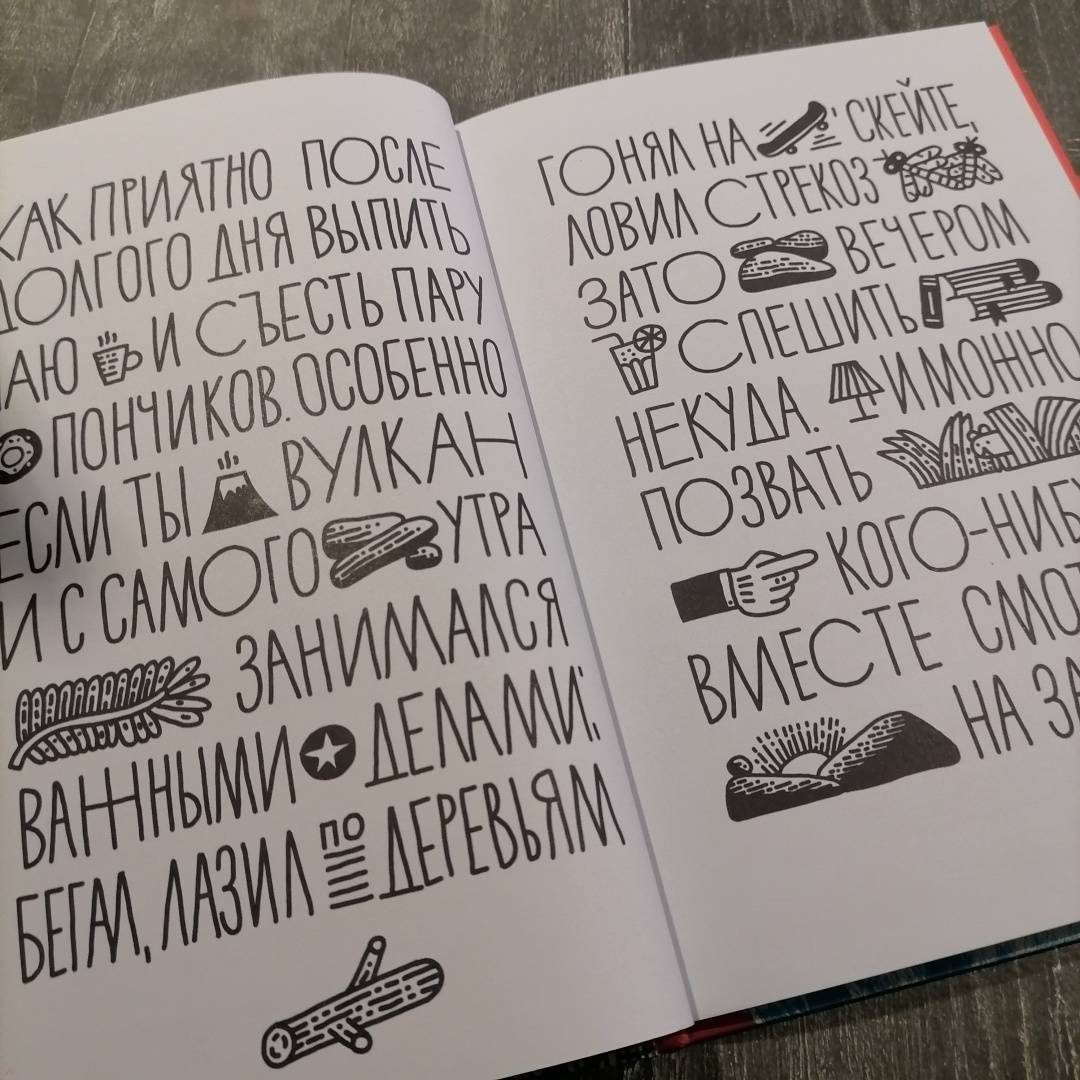 КАК ПРИЯТНО ПОСЛЕ
ДОЛГОГО ДНЯ ВЫПИТЬ
АЮ И СЪЕСТЬ ПАРУ
ПОНЧИКОВ. ОСОБЕННО
ЕСЛИ ТЫ ВУЛКАН
И С САМОГО УТРА
ЗАНИМАЛСЯ
ВАЖНЫМИ ДЕЛАМИ:
БЕГАЛ, ЛАЗИЛ ПО ДЕРЕВЬЯМ
ГОНЯЛ НА СКЕЙТЕ,
ЛОВИЛ СТРЕКОЗ
ЗАТО ВЕЧЕРОМ
СПЕШИТЬ
НЕКУДА. И МОЖНО
ПОЗВАТЬ
КОГО-НИБУ
ВМЕСТЕ СМОТ
НА ЗА